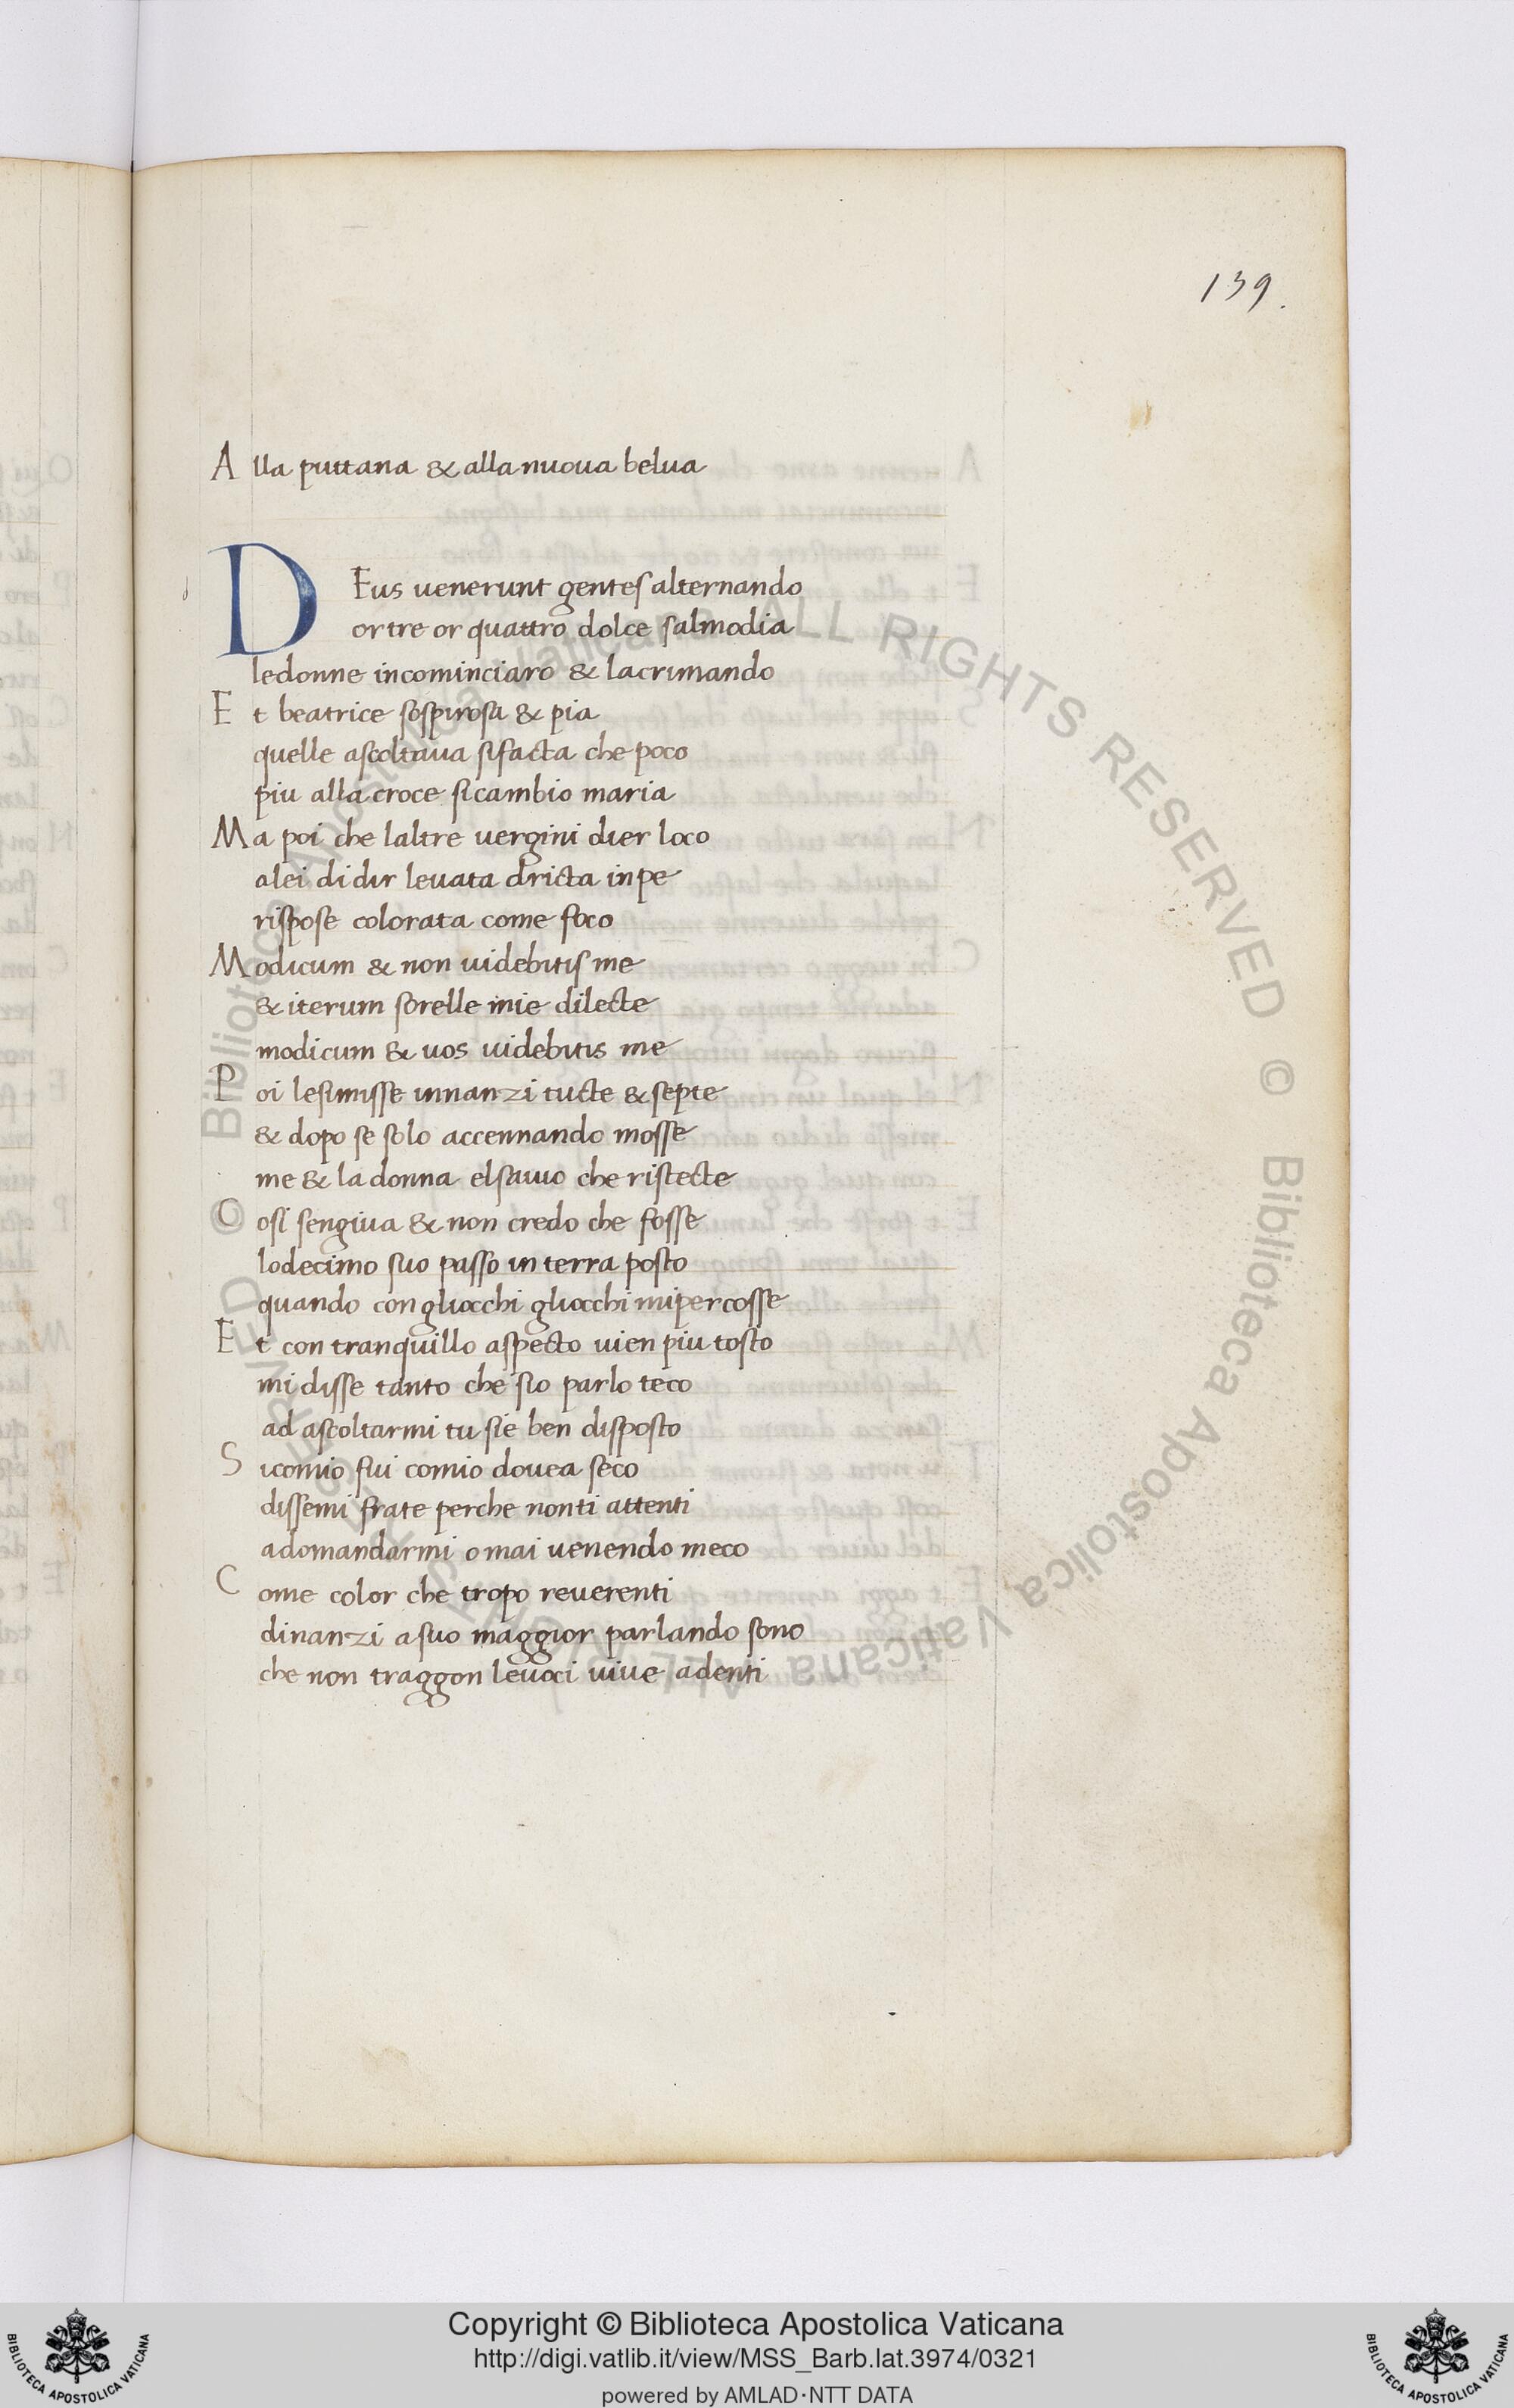 139.
Alla puttana & alla nuoua belua
DEus uenerunt gentes alternando
or tre or quattro dolce salmodia
le donne incominciaro & lacrimando
Et beatrice sospirosa & pia
quelle ascoltaua sifacta che poco
piu alla croce sicambio maria
Ma poi che laltre uergini dier loco
alei di dir leuata dricta inpe
rispose colorata come foco
Modicum & non uidebitis me
& iterum sorelle mie dilecte
modicum & uos uidebitis me
Poi lesimisse innanzi tucte & septe
& dopo se solo accennando mosse
me & la donna elsauio che ristecte
Cosi sengiua & non credo che fosse
lodecimo suo passo in terra posto
quando con gliocchi gliocchi mipercosse
Et con tranquillo aspecto uien piu tosto
mi disse tanto che sio parlo teco
ad ascoltarmi tu sie ben disposto
Sicomio fui comio douea seco
dissemi frate perche nonti attenti
adomandarmi omai uenendo meco
Come color che tropo reuerenti
dinanzi asuo maggior parlando sono
che non traggon leuoci uiue adenti
Biblioteca Apostolica Vaticana ALL RIGHTS RESERVED © Biblioteca Apostolica Vaticana ALL RIGHTS RESERVED ©
Copyright © Biblioteca Apostolica Vaticana
http://digi.vatlib.it/view/MSS_Barb.lat.3974/0321
powered by AMLAD·NTT DATA
BIBLIOTECA APOSTOLICA VATICANA
BIBLIOTECA APOSTOLICA VATICANA